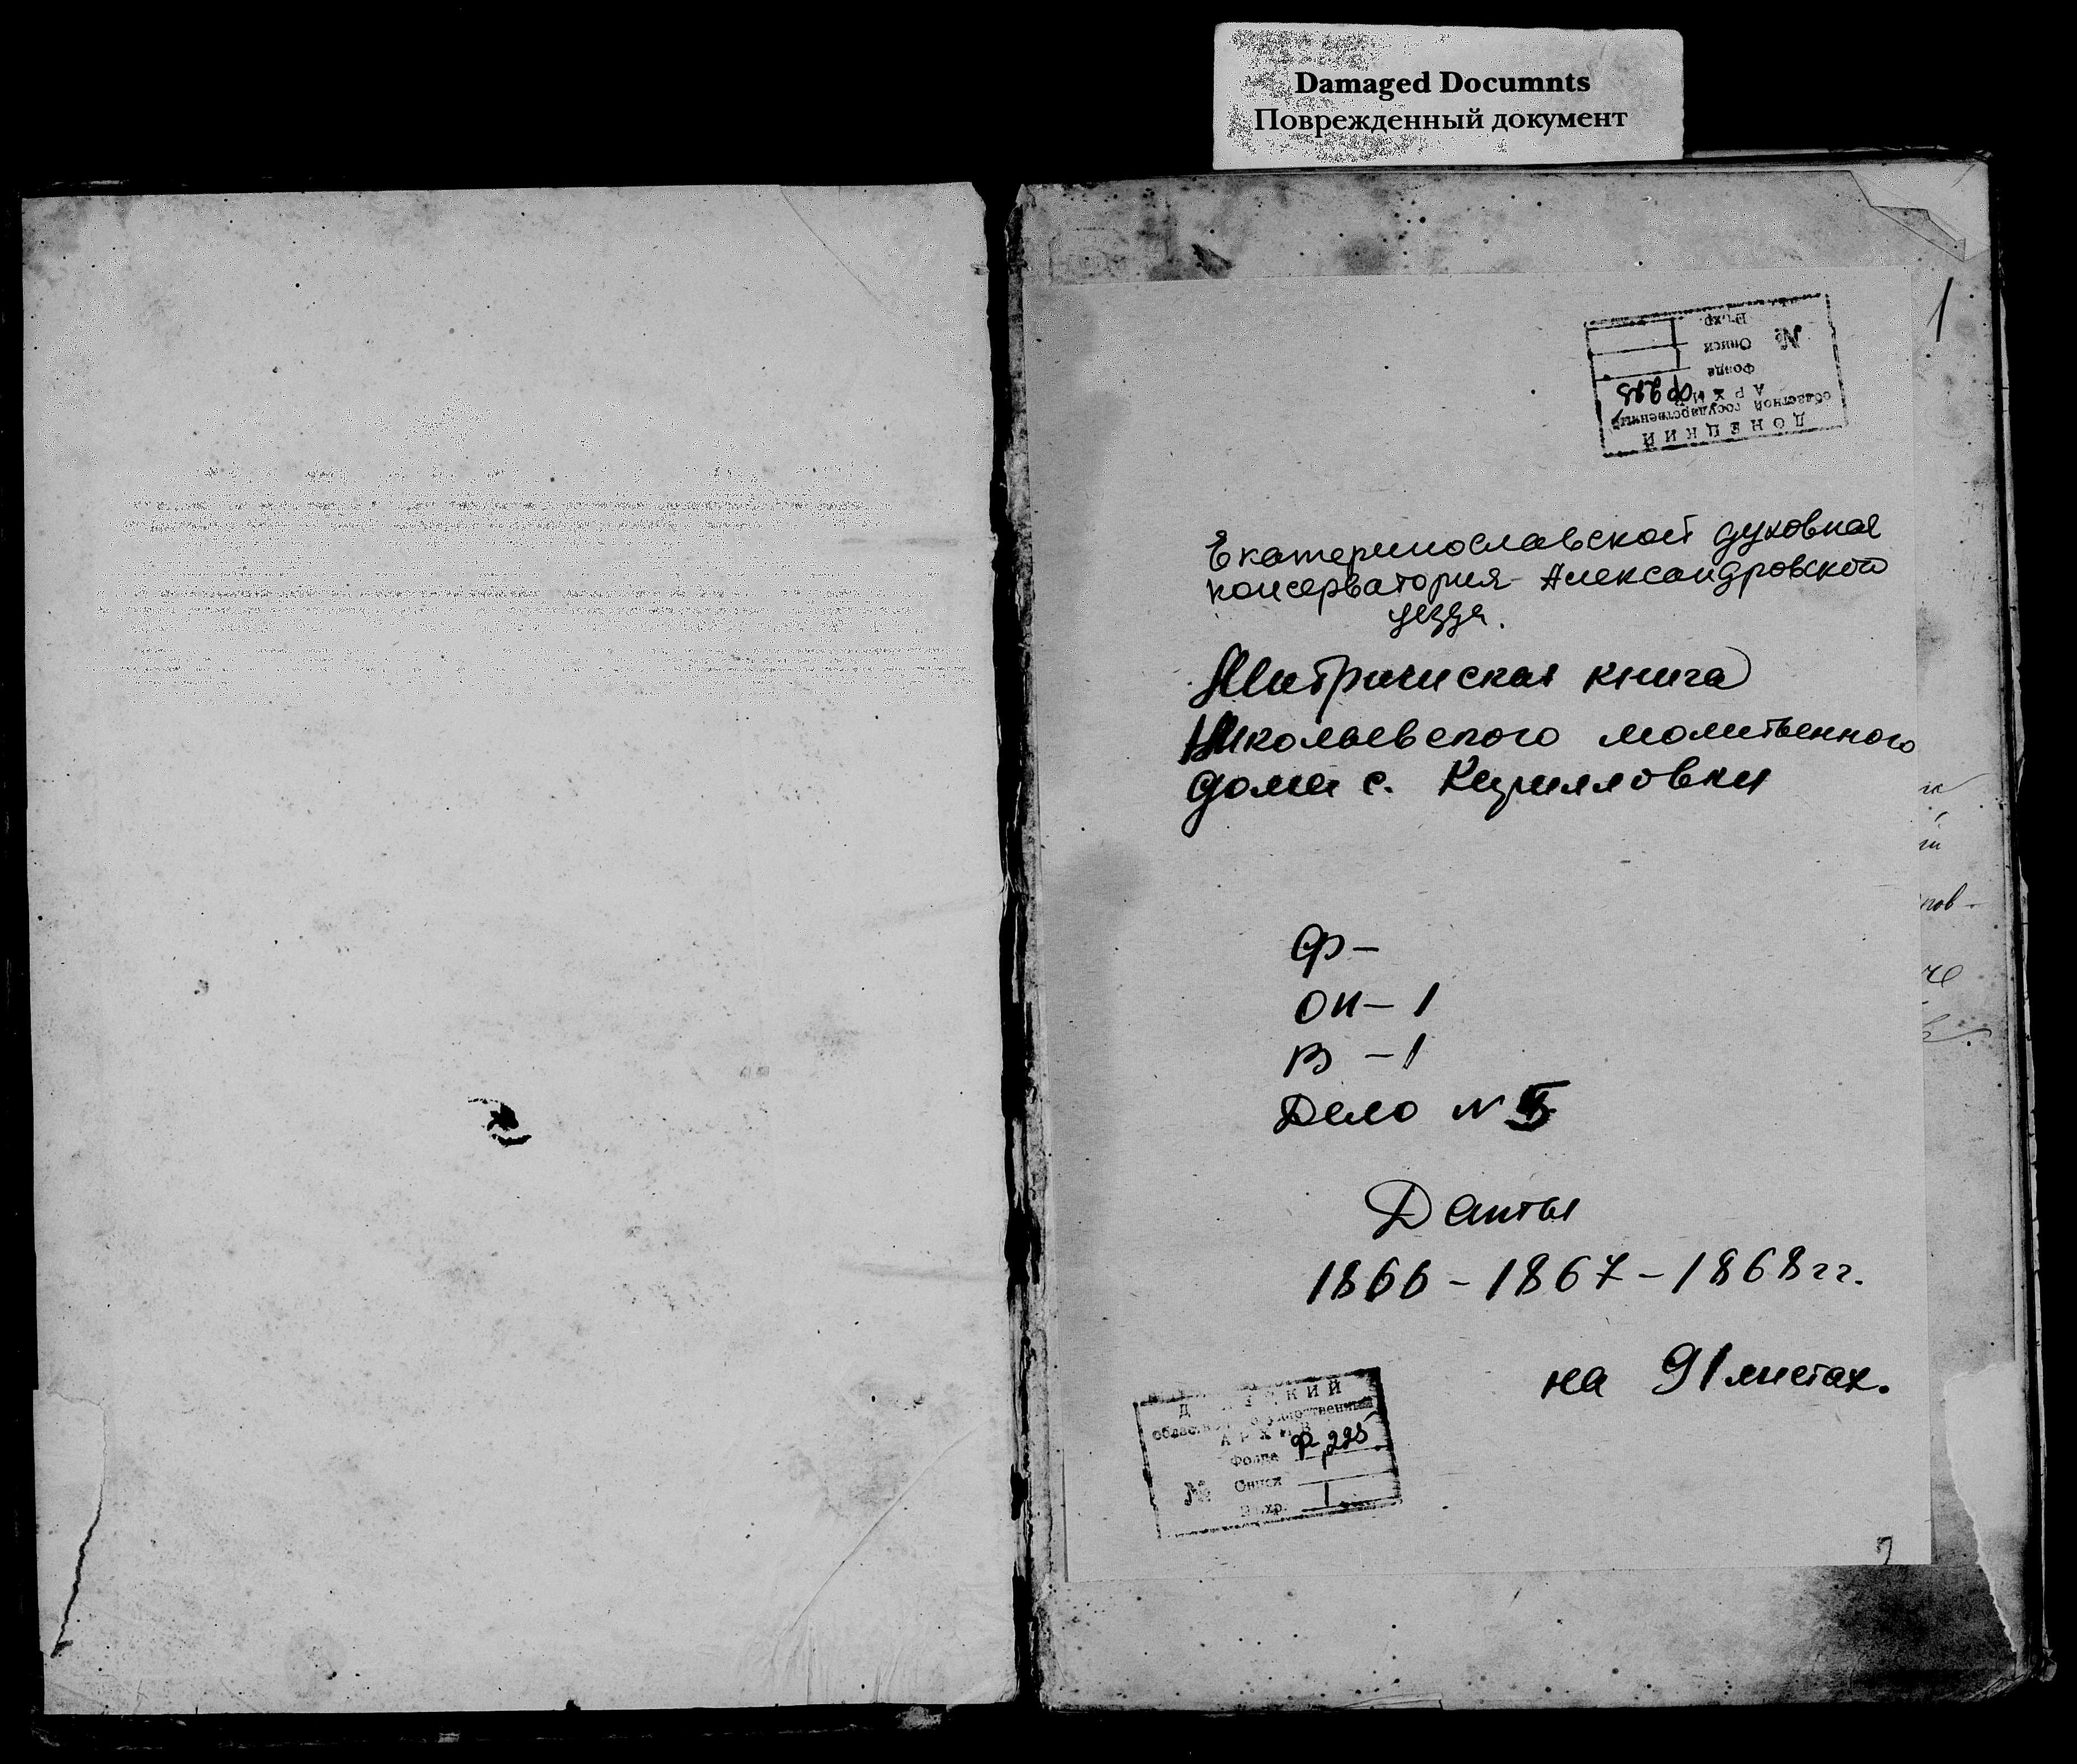 Damaged Documnts
Поврежденный документ
1
ДОНЕЦКИЙ
областной государственный
АРХИВ
№ Фонда Ф 225
Описи
Ед.хр.
Екатеринославской духовная
консерватория Александровской
уезда.
Митрическая книга
Никольевского молитвенного
дома с. Кирилловки
Ф-
ОП-1
В -1
Дело N 5
Данты
1866-1867-1868 гг.
на 91 листах.
областной государственный
АРХИВ
Фонда Ф 225
№ Описи 1
Ед.хр.